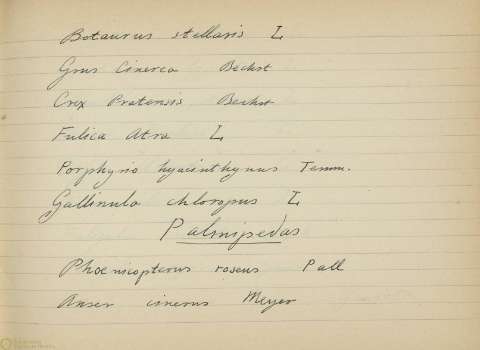 Botaurus stellaris L
Grus Cinerea Bechst
Crex Pratensis Bechst
Fulica Atra L
Porphyrio hyacinthynus Temm.
Gallinula chloropus L
Palmipedas
Phoenicopterus roseus Pall
Anser cinerus Meyer